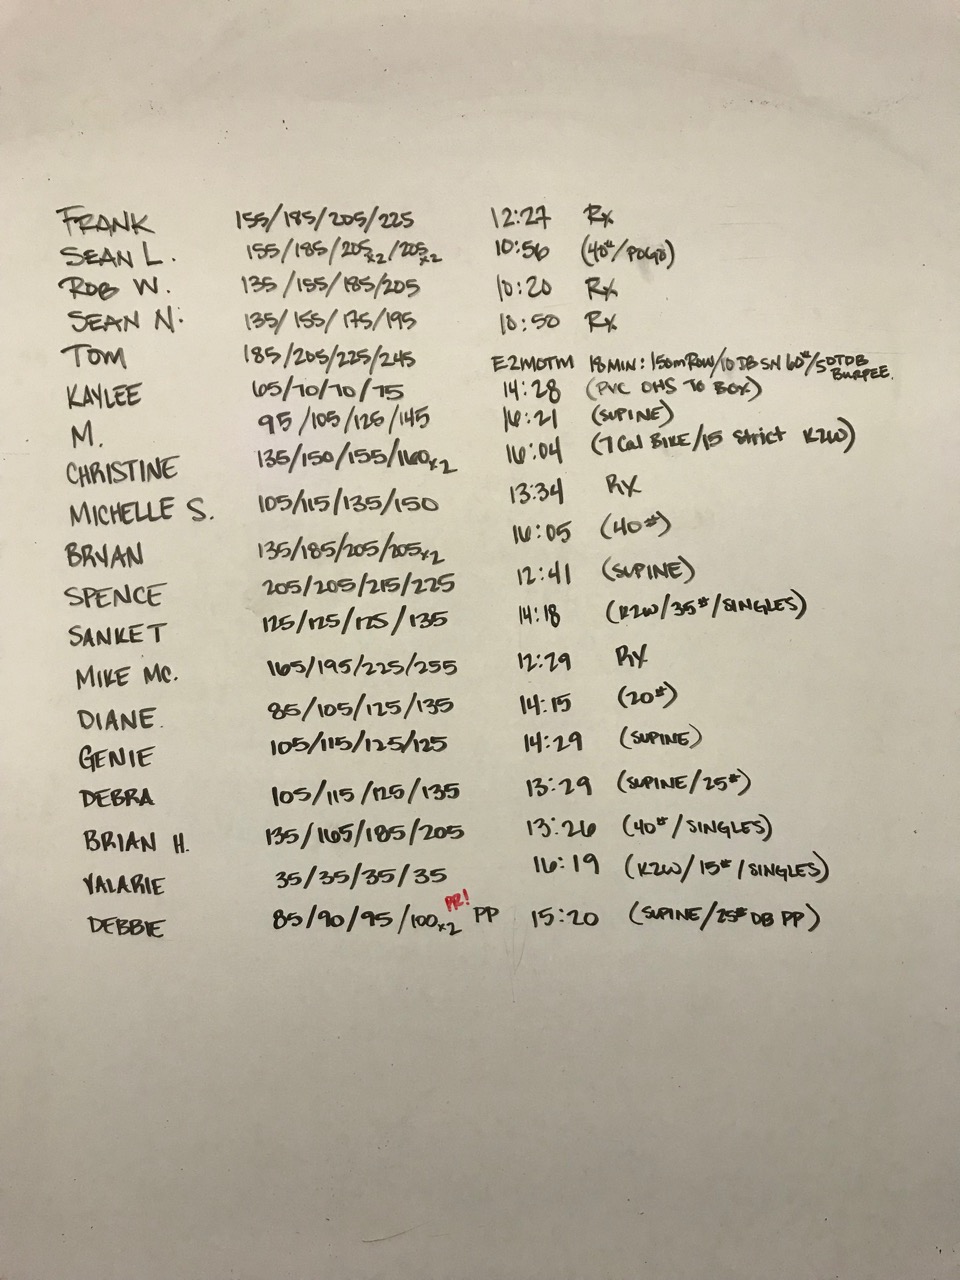 FRANK 155/185/205/225 12:27 Rx
SEAN L. 155/185/205x2/205x2 10:56 (40#/POGO)
ROB W. 135/155/185/205 10:20 Rx
SEAN N. 135/155/175/195 10:50 Rx
TOM 185/205/225/245 E2MOTM 18 MIN: 150m ROW/10 DB SN 60#/5 DTDB BURPEE.
KAYLEE 65/70/70/75 14:28 (PVC OHS TO BOX)
M. 95/105/125/145 16:21 (SUPINE)
CHRISTINE 135/150/155/160x2 16:04 (7 Cal BIKE/15 Strict K2W)
MICHELLE S. 105/115/135/150 13:34 RX
BRYAN 135/185/205/205x2 16:05 (40#)
SPENCE 205/205/215/225 12:41 (SUPINE)
SANKET 125/125/125/135 14:18 (K2W/35#/SINGLES)
MIKE MC. 165/195/225/255 12:29 RX
DIANE. 85/105/125/135 14:15 (20#)
GENIE 105/115/125/125 14:29 (SUPINE)
DEBRA 105/115/125/135 13:29 (SUPINE/25#)
BRIAN H. 135/165/185/205 13:26 (40#/SINGLES)
VALARIE 35/35/35/35 16:19 (K2W/15#/SINGLES)
DEBBIE 85/90/95/100x2 PR! PP 15:20 (SUPINE/25# DB PP)